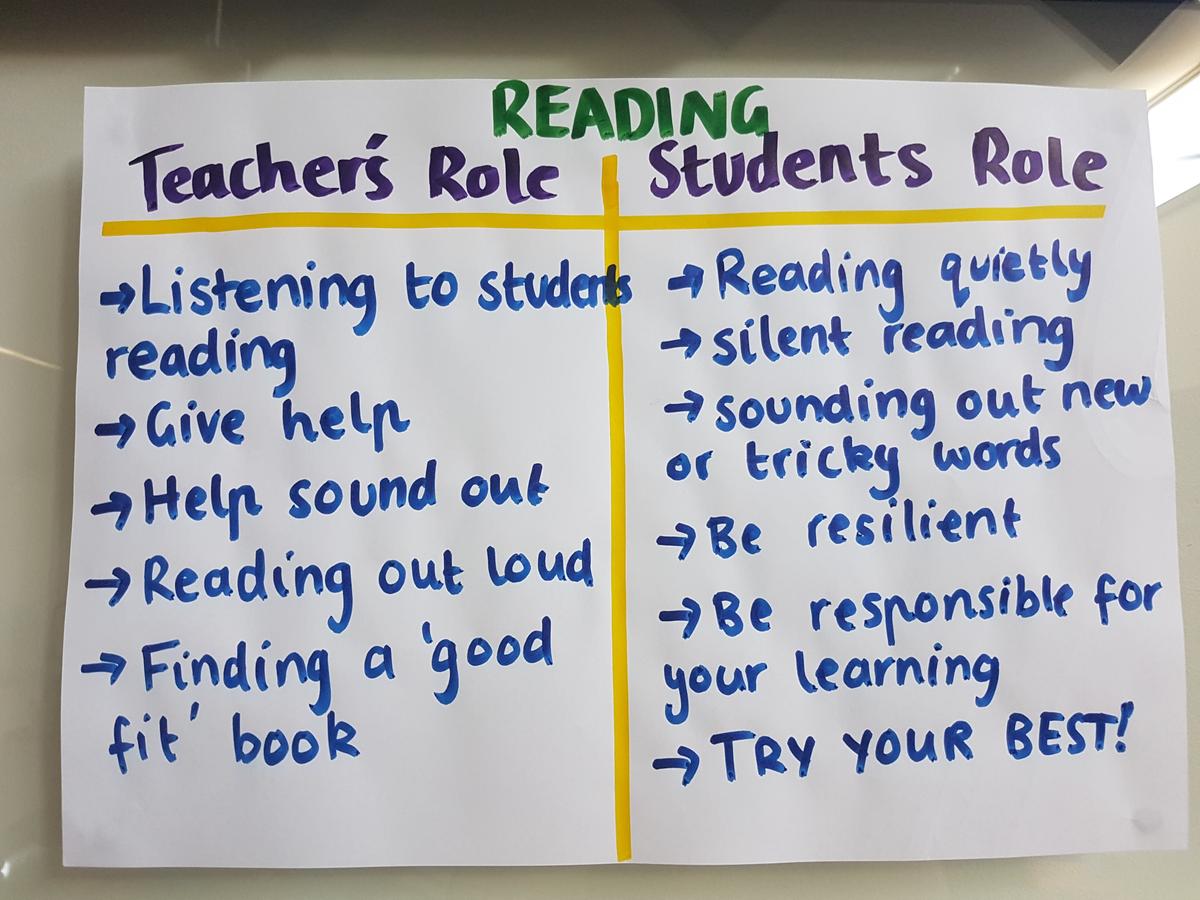 READING
Teacher's Role
→Listening to students
reading
→Give help
→Help sound out
→Reading out loud
→Finding a 'good
fit' book
Students Role
→Reading quietly
→silent reading
→sounding out new
or tricky words
→Be resilient
→Be responsible for
your learning
→TRY YOUR BEST!